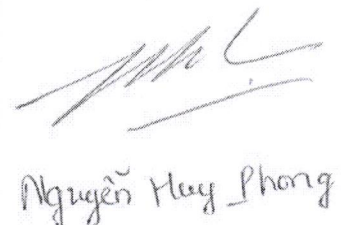 Nguyễn Huy Phong